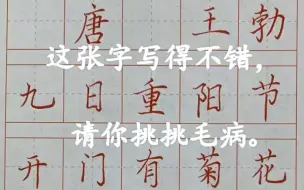 唐 王勃
这张字写得不错,
九日重阳节
请你挑挑毛病。
开门有菊花